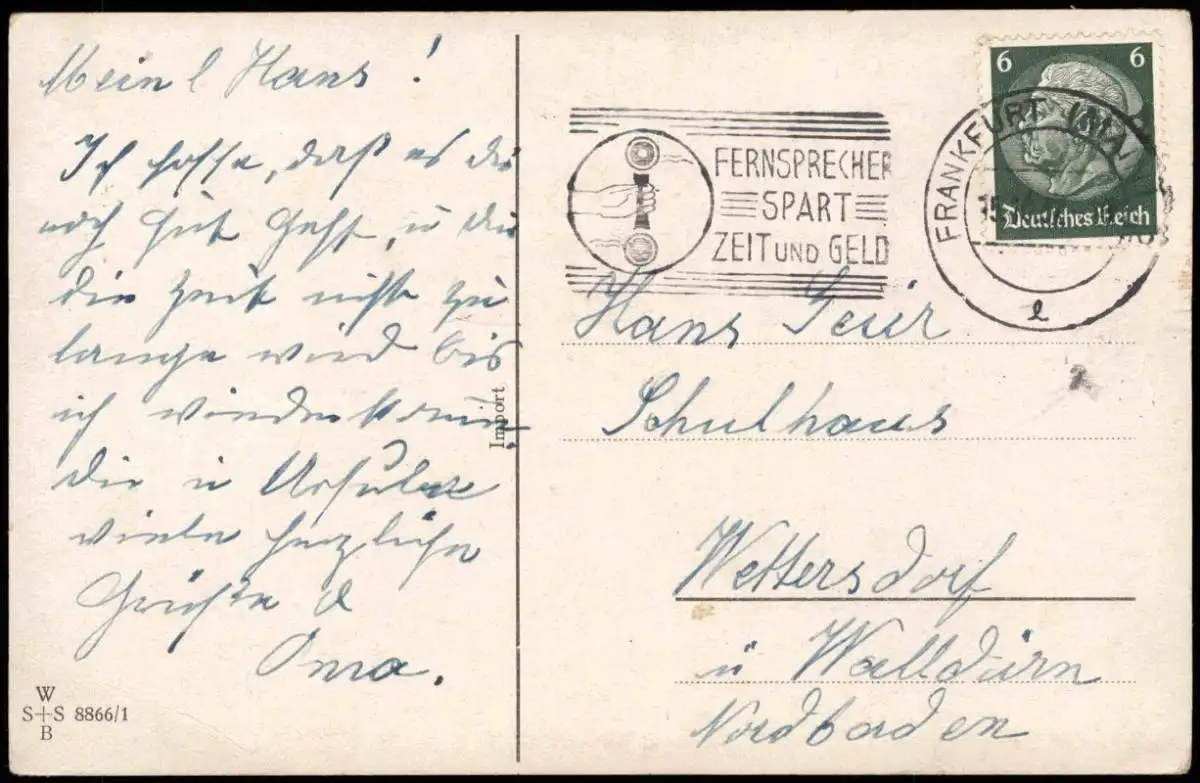 Mein l Hans!
Ich hoffe, daß es dir
noch gut geht, u dir
die Zeit nicht zu
lange wird bis
ich wiederkomm
dir u Ursula
viele herzliche
Grüße d
Oma.
W
S+S 8866/1
B
Import
FERNSPRECHER
SPART
ZEIT UND GELD
FRANKFURT (MAIN)
l
6 6
Deutsches Reich
Hans Geier
Schulhaus
Wettersdorf
ü Walldürn
Nordbaden